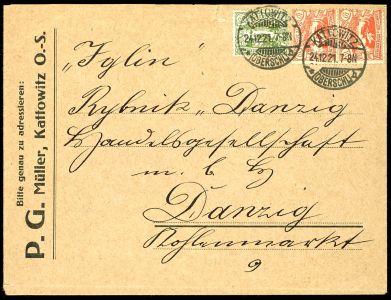 Bitte genau zu adressieren:
P. G. Müller, Kattowitz O.-S.
KATTOWITZ
24.12.21. 7-8N
(OBERSCHL.)
KATTOWITZ
24.12.21. 7-8N
(OBERSCHL.)
"Iglin"
Rybnik" Danzig
Handelsgesellschaft
m. b. H
Danzig
Kohlenmarkt
9